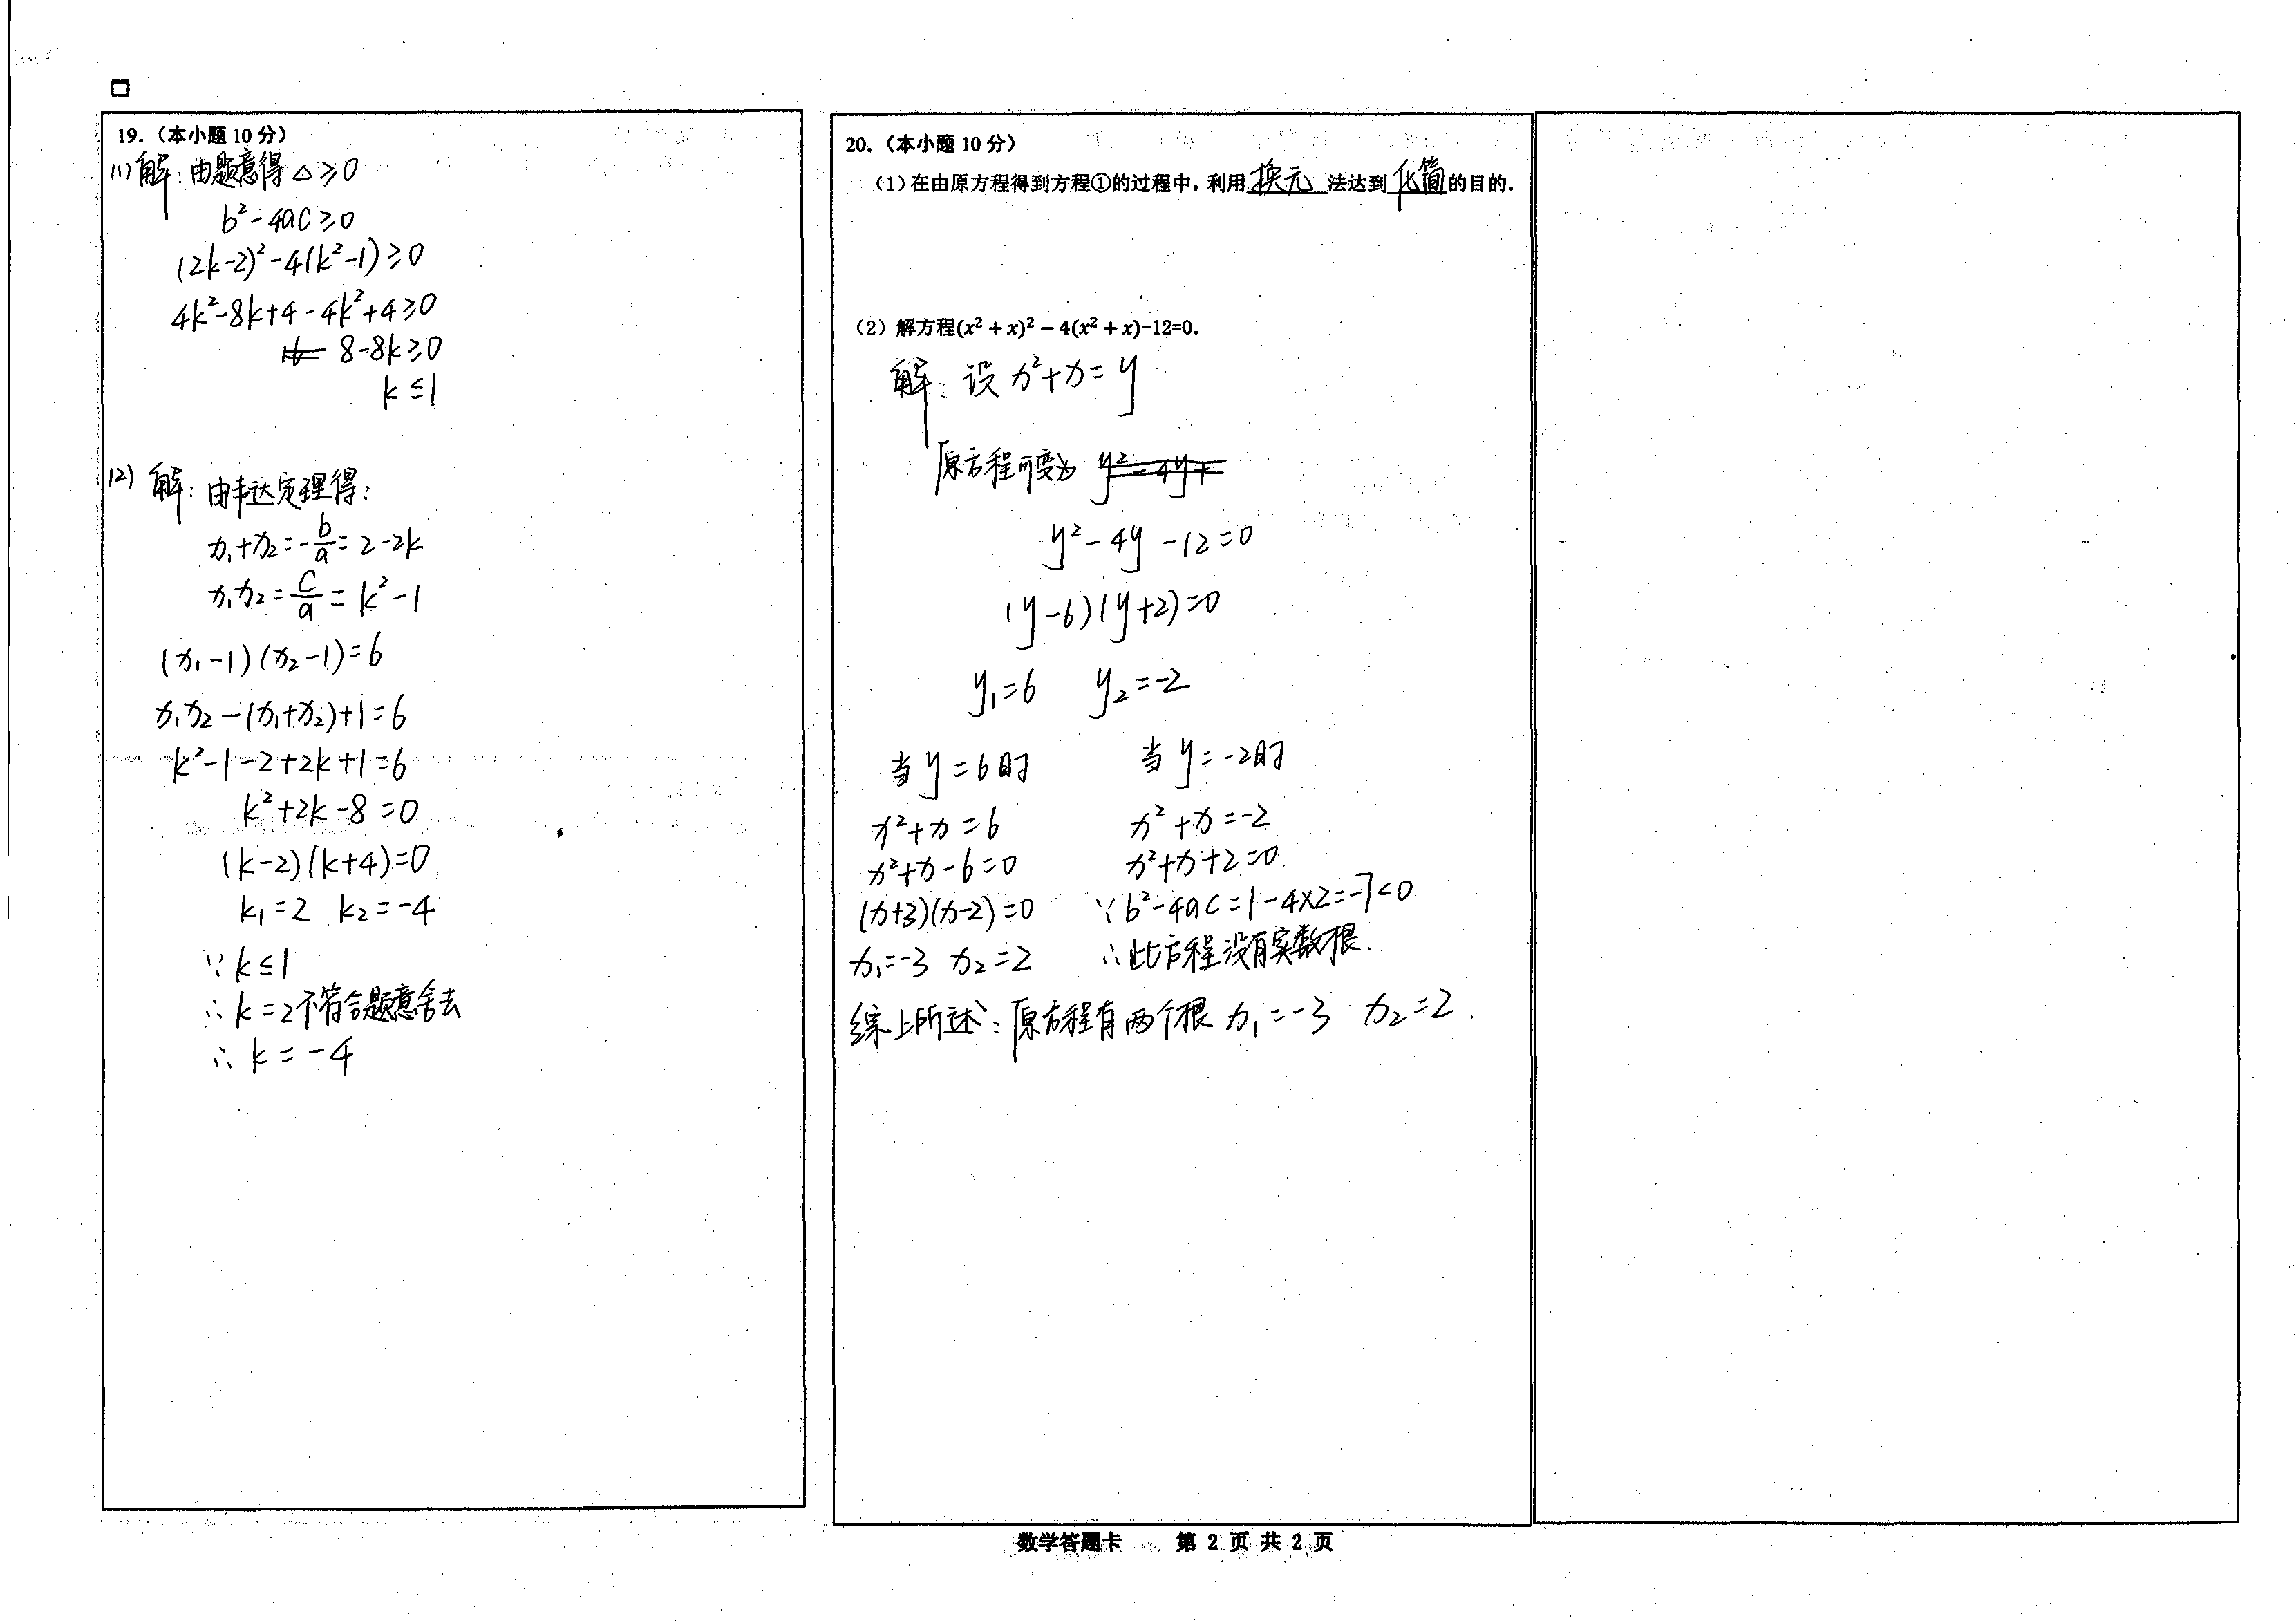 19.（本小题 10 分）
(1) 解：由题意得 △≥0
b²-4ac≥0
(2k-2)²-4(k²-1)≥0
4k²-8k+4-4k²+4≥0
8-8k≥0
k≤1
(2) 解：由韦达定理得：
x₁+x₂=-b/a=2-2k
x₁x₂=c/a=k²-1
(x₁-1)(x₂-1)=6
x₁x₂-(x₁+x₂)+1=6
k²-1-2+2k+1=6
k²+2k-8=0
(k-2)(k+4)=0
k₁=2 k₂=-4
∵k≤1
∴k=2不符合题意舍去
∴k=-4
20.（本小题 10 分）
（1）在由原方程得到方程①的过程中，利用 换元 法达到 化简 的目的.
（2）解方程(x² + x)² − 4(x² + x)-12=0.
解：设 x²+x=y
原方程可变为 y²-4y+
y²-4y-12=0
(y-6)(y+2)=0
y₁=6 y₂=-2
当y=6时 当y=-2时
x²+x=6 x²+x=-2
x²+x-6=0 x²+x+2=0.
(x+3)(x-2)=0 ∵b²-4ac=1-4×2=-7<0
x₁=-3 x₂=2 ∴此方程没有实数根.
综上所述：原方程有两个根 x₁=-3 x₂=2.
数学答题卡 第 2 页 共 2 页